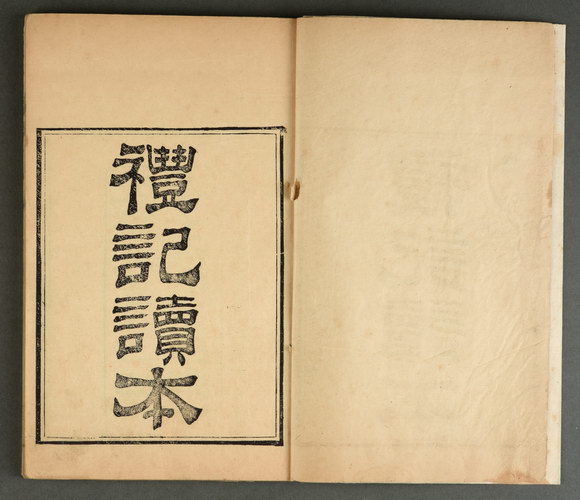 禮記讀本